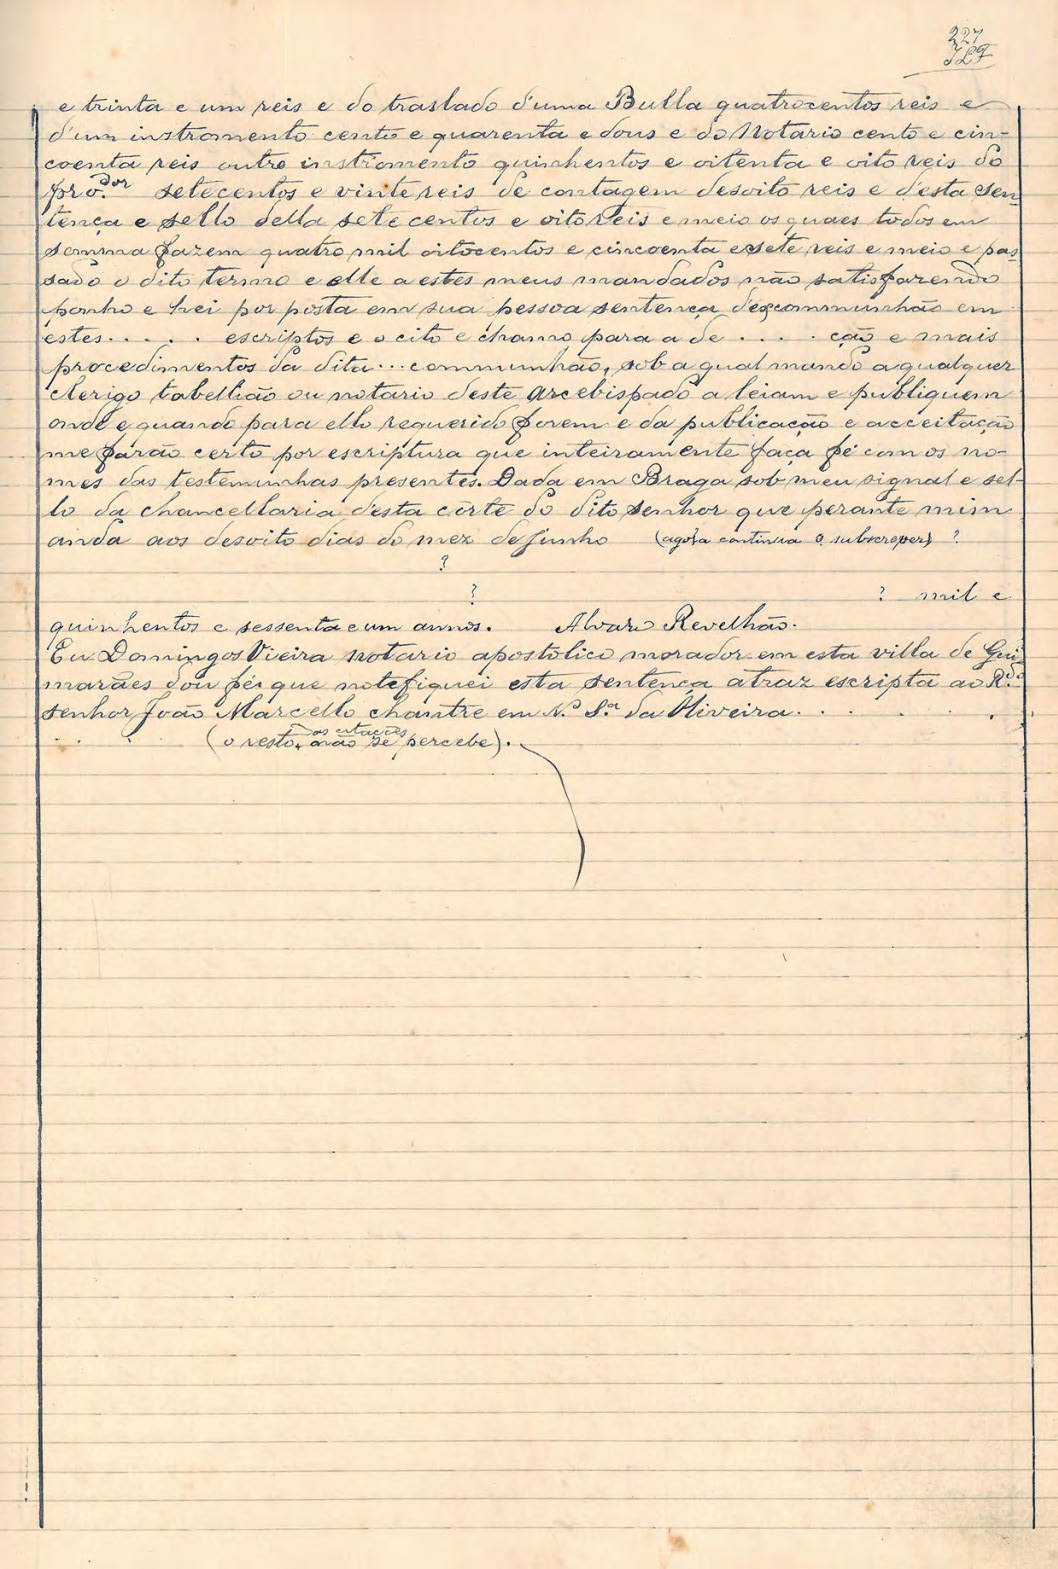 227
e trinta e um reis e do traslado d'uma Bulla quatrocentos reis e
d'um instromento cento e quarenta e dous e do Notario cento e cin-
coenta reis outro instromento quinhentos e oitenta e oito reis do
pro.dor setecentos e vinte reis de contagem desoito reis e desta sen-
tença e sello della setecentos e oito reis e meio os quaes todos em
somma fazem quatro mil oitocentos e cincoenta e sete reis e meio e pas-
sado o dito termo e elle a estes meus mandados não satisfazendo
ponho e hei por posta em sua pessoa sentença descommunhão em
estes . . . . . escriptos e o cito e chamo para a de . . . . ção e mais
procedimentos da dita . . . communhão, sob a qual mando a qualquer
clerigo tabellião ou notario deste Arcebispado a leiam e publiquem
onde e quando para ello requerido forem e da publicação e acceitação
me farão certo por escriptura que inteiramente faça fé com os no-
mes das testemunhas presentes. Dada em Braga sob meu signal e sel-
lo da chancellaria d'esta côrte do dito senhor que perante mim
anda aos desoito dias do mez de Junho (agora continua o subscrever) ?
?
? ? mil e
quinhentos e sessenta e um annos. Alvaro Revelhão.
Eu Domingos Vieira notario apostolico morador em esta villa de Gui-
marães dou fé que notefiquei esta sentença atraz escripta ao R.do
senhor João Marcello chantre em N.ª S.ra da Oliveira. . . . . .
. . . (o resto, as citações não se percebe).